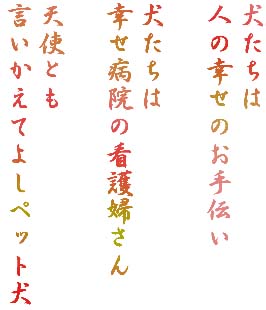 犬たちは
人の幸せのお手伝い
犬たちは
幸せ病院の看護婦さん
天使とも
言いかえてよしペット犬